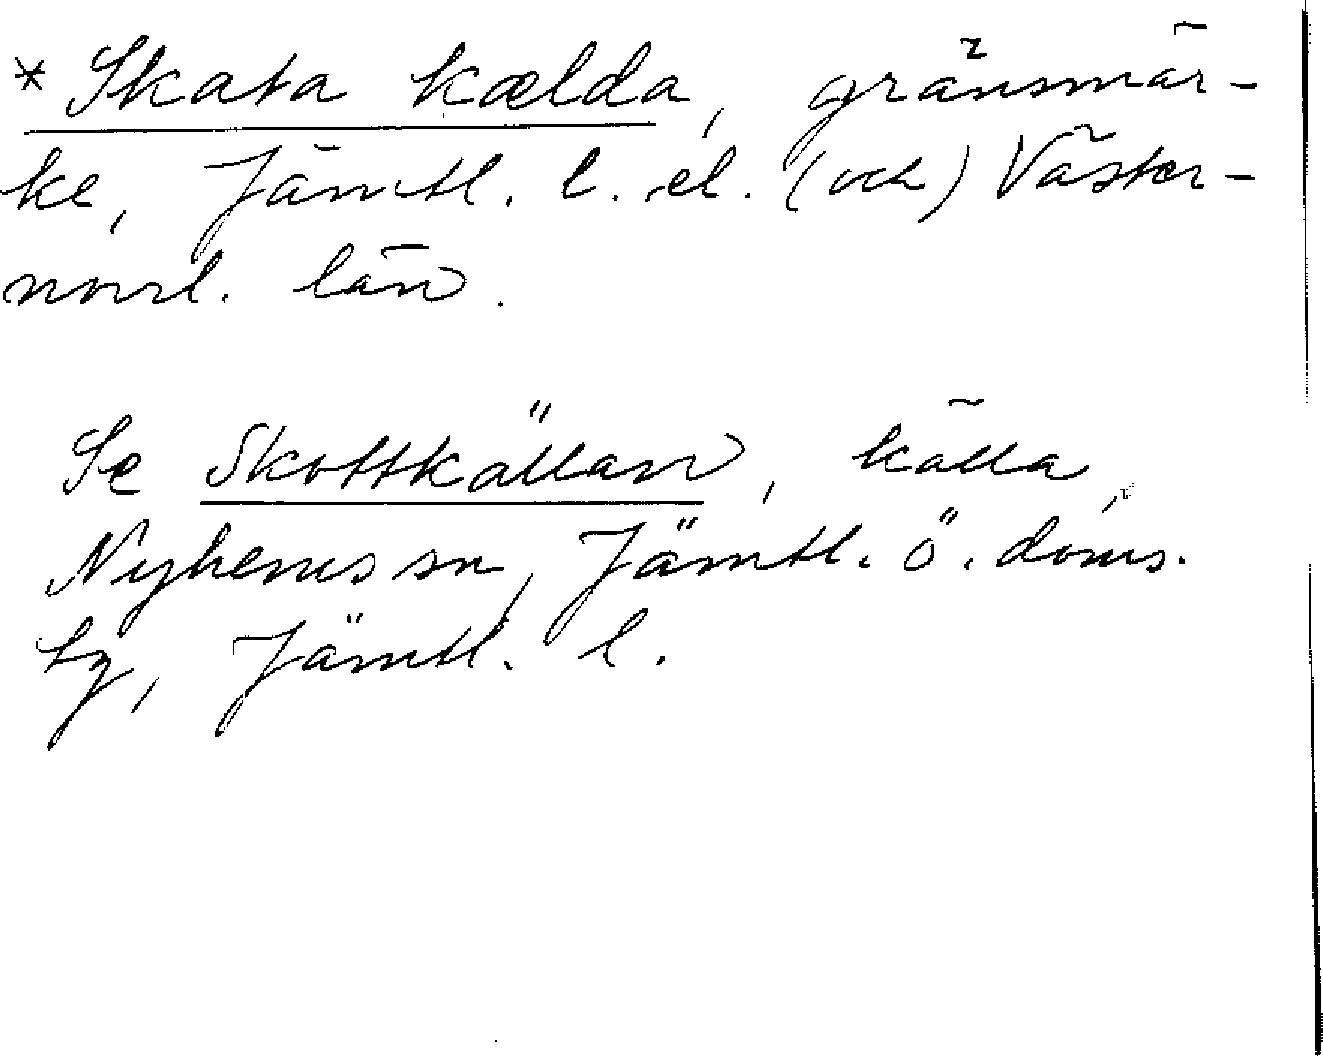 * Skata kælda, gränsmär-
ke, Jämtl. l. el. (och) Väster-
norrl. län.
Se Skottkällan, källa,
Nyhems sn, Jämtl. ö. doms.
hg, Jämtl. l.